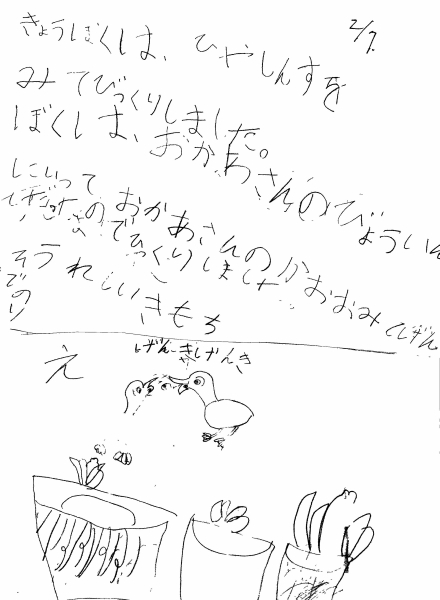 2/7.
きょうぼくしは、ひやしんすを
みてびっくりしました。
ぼくしは、おかあさんのびょういん
にいって
のおかあさんのかおおみ
でびっくりしました
うれしい
きもち
え
げんきげんき